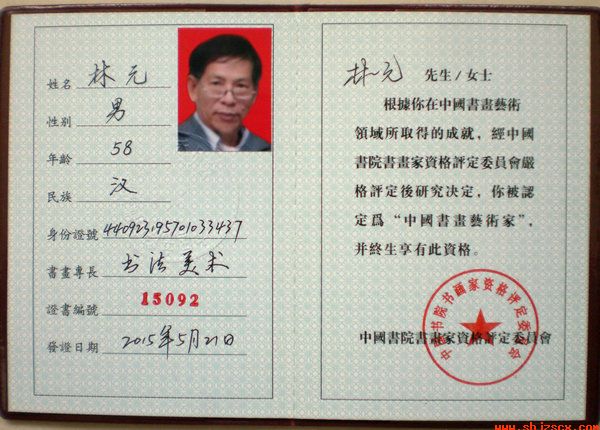 姓名 林元
性别 男
年齡 58
民族 汉
身份證號 440923195701033437
書畫專長 书法美术
證書編號 15092
發證日期 2015年5月21日
林元 先生/女士
根據你在中國書畫藝術
領域所取得的成就，經中國
書院書畫家資格評定委員會嚴
格評定後研究决定，你被認
定爲“中國書畫藝術家”，
并終生享有此資格。
中國書院書畫家資格評定委員會
中国书院书画家资格评定委员会